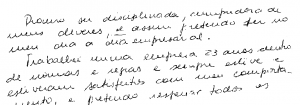 Procuro ser disciplinada, cumpridora de
meus deveres, e assim pretendo ser no
meu dia a dia empresarial.
Trabalhei numa empresa 23 anos dentro
de normas e regras e sempre estive e
estiveram satisfeitos com meu comporta-
mento, e pretendo respeitar todos os